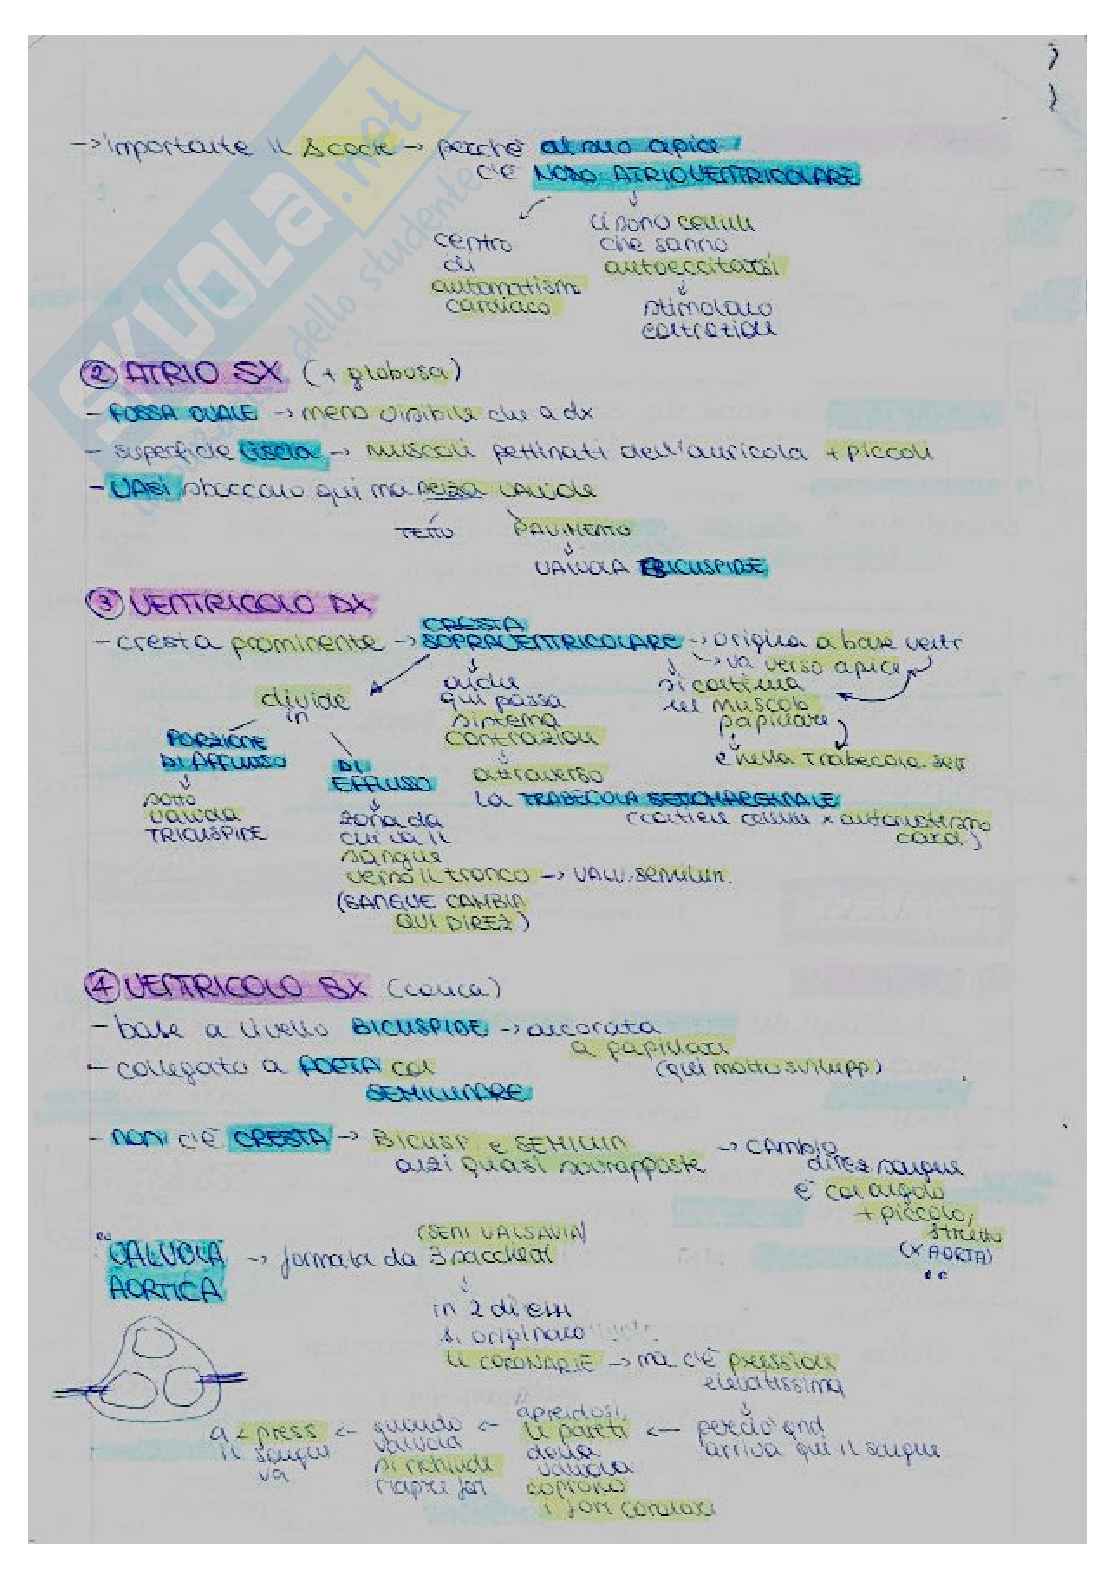 SKUOLA.net
dello studente
→ importante il → perché al suo apice
c'è NODO ATRIOVENTRICOLARE
centro
di
automatism
cardiaco
ci sono cellule
che sanno
autoeccitarsi
↓
stimolano
contrazioni
② ATRIO SX (+ globosa)
- FOSSA OVALE → meno visibile che a dx
- superficie liscia → muscoli pettinati dell'auricola + piccoli
- VASI sboccano qui ma senza valvole
TETTO PAVIMENTO
↓
VALVOLA BICUSPIDE
③ VENTRICOLO DX
- cresta prominente → CRESTA
SOPRAVENTRICOLARE → origina a base ventr
→ va verso apice
divide
in
PORZIONE
DI AFFLUSSO
↓
sotto
valvola
TRICUSPIDE
DI
EFFLUSSO
↓
zona da
cui va il
sangue
verso il tronco → VALV. semilun.
(SANGUE CAMBIA
QUI DIREZ)
anche
qui passa
sistema
contrazioni
↓
attraverso
la TRABECOLA SETTOMARGINALE
(contiene cellule x automatismo
card)
si continua
nel muscolo
papillare
è nella Trabecola sett
④ VENTRICOLO SX (conica)
- base a livello BICUSPIDE → ancorata
a papillari
(qui molto svilupp)
- collegato a AORTA con
SEMILUNARE
- non c'è CRESTA → BICUSP. e SEMILUN
anzi quasi sovrapposte → cambio
direz sangue
è con angolo
+ piccolo,
stretto
(x AORTA)
VALVOLA
AORTICA → formata da 3 pacchetti
(SENI VALSAVIA)
↓
in 2 di essi
si originano
le CORONARIE → ma c'è pressione
elevatissima
↓
perciò qnd
arriva qui il sangue
← aprendosi,
le pareti
della
valvola
coprono
i fori coronari
← quando
valvola
si richiude
riapre fori
← a < press
il sangue
va